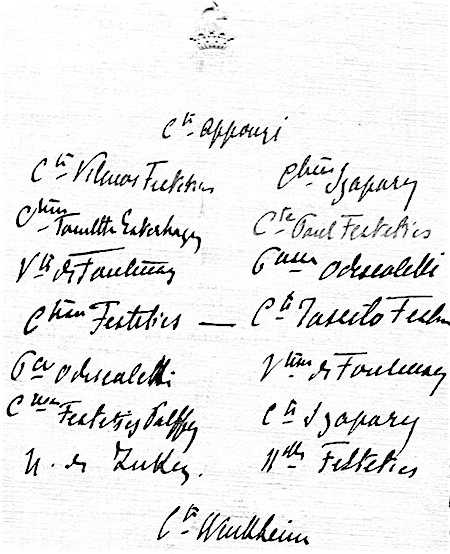 Cte Apponyi
Cte Vilmos Festetics Ctesse Szapary
Ctesse Esterhazy Cte Paul Festetics
Vte de Fontenay Psse Odescalchi
Ctesse Festetics — Cte Tassilo Festetics
Pce Odescalchi Vtesse de Fontenay
Ctesse Festetics Palffy Cte Szapary
N. de Mlle Festetics
Cte Wenkheim